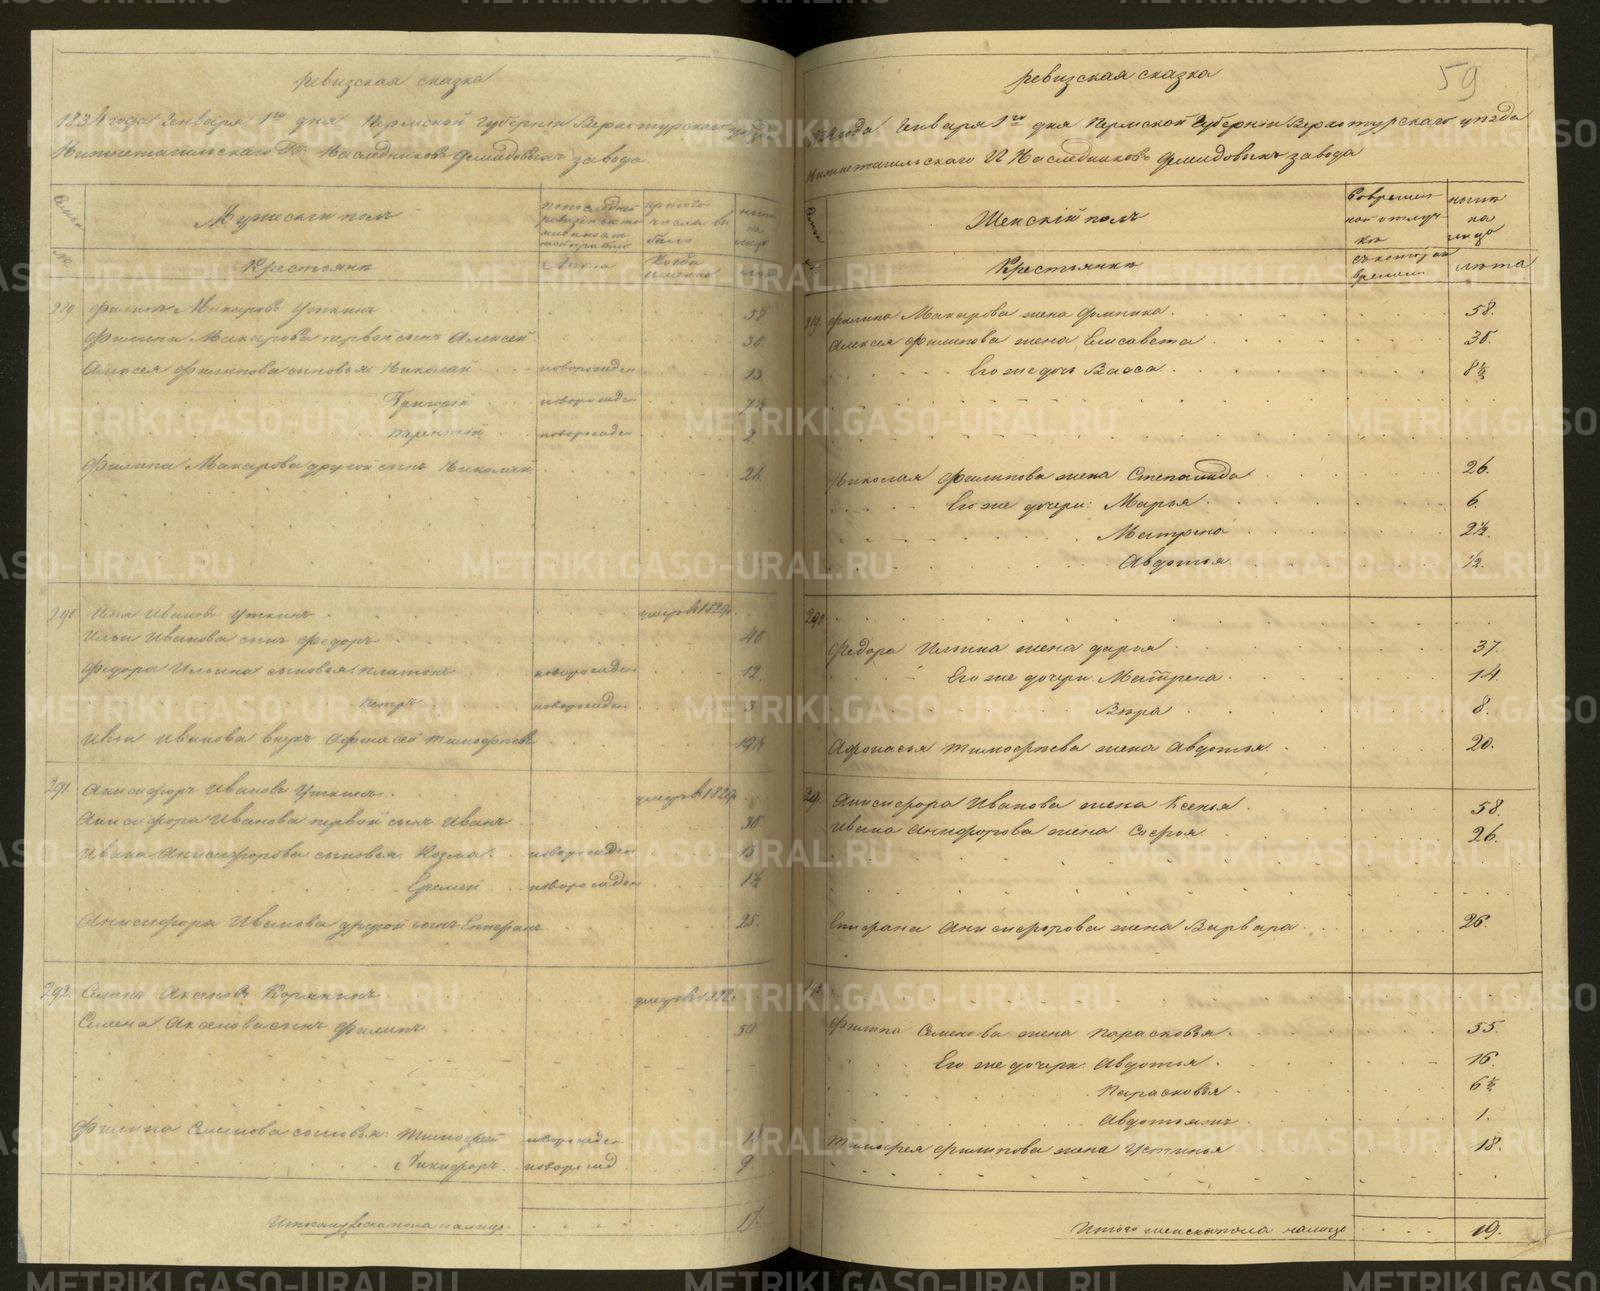 ревизская сказка
1834 года Генваря 1го дня Пермской Губернии Верхотурского уезда
Нижнетагильскаго Гг. Наследниковъ Демидовыхъ завода.
Мужскій полъ
Крестьяне
Лета
Когда именно
лета
Филипъ Макаровъ Уткинъ 58
Филипа Макарова первой сынъ Алексей 36
Алексея Филипова сыновья Николай новорожден 13
Григорей новорожден 7½
Терентій новорожден 2
Филипа Макарова другой сынъ Николай 26
290. Илья Ивановъ Уткинъ умеръ в
Ильи Иванова сынъ Федоръ 40
Федора Ильина сыновья Платонъ новорожден 12
Петръ новорожден 3
Ильи Иванова внукъ Афонасей Тимофеевъ 19½
291. Анисифоръ Ивановъ Уткинъ умеръ в
Анисифора Иванова первой сынъ Иванъ 36
Ивана Анисифорова сыновья Козма новорожден 13
Еремей новорожден 1½
Анисифора Иванова другой сынъ Епифанъ 25.
292. Семенъ Аксеновъ Корякинъ умеръ в 1822
Семена Аксенова сынъ Филипъ 50
Филипа Семенова сыновья: Тимофей новорожден
Никифоръ новорожд 9
Итого мужеска пола налицо 17.
59
ревизская сказка
1834 года Генваря 1го дня Пермской Губерніи Верхотурскаго уезда
Нижнетагильскаго Гг Наследниковъ Демидовыхъ завода
Женскій полъ
Во временной отлучке
ныне на лицо
Крестьянки
съ котораго времени
лета
Филипа Макарова жена Домника. 58.
Алексея Филипова жена Елисавета 36.
Его же дочь Васса. 8½
Николая Филипова жена Степанида 26.
Его же дочери: Марья. 6.
Матрона 2½.
Авдотья ½.
290
Федора Ильина жена Дарья 37.
Его же дочери Матрена. 14.
Вера 8.
Афонасья Тимофеева жена Авдотья. 20.
291 Анисифора Иванова жена Ксенья. 58.
Ивана Анисифорова жена Софья 26.
Епифана Анисифорова жена Варвара 26.
Филипа Семенова жена Парасковья. 55.
Его же дочери Авдотья. 16.
Парасковья. 6½
1.
Тимофея Филипова жена Устинья 18.
Итого женска пола налицо 19.
METRIKI.GASO-URAL.RU